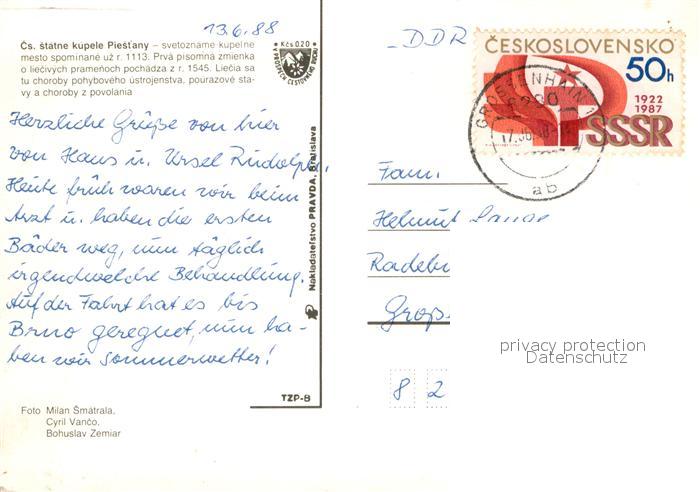 13.6.88
Čs. štátne kúpele Piešťany – svetoznáme kúpeľné
mesto spomínané už r. 1113. Prvá písomná zmienka
o liečivých prameňoch pochádza z r. 1545. Liečia sa
tu choroby pohybového ústrojenstva, poúrazové sta-
vy a choroby z povolania
Kčs 0.20
Herzliche Grüße von hier
von Hans u. Ursel Rudolph.
Heute früh waren wir beim
Arzt u. haben die ersten
Bäder weg, nun täglich
irgendwelche Behandlung.
Auf der Fahrt hat es bis
Brno geregnet, nun ha-
ben wir Sommerwetter!
Foto Milan Šmátrala,
Cyril Vančo,
Bohuslav Zemiar
Nakladateľstvo PRAVDA, Bratislava
TZP-8
DDR
ČESKOSLOVENSKO
50h
1922
1987
SSSR
GROSSENHAIN 1
ab
Fam.
Helmut
Radebu
Groß
8 2
privacy protection
Datenschutz